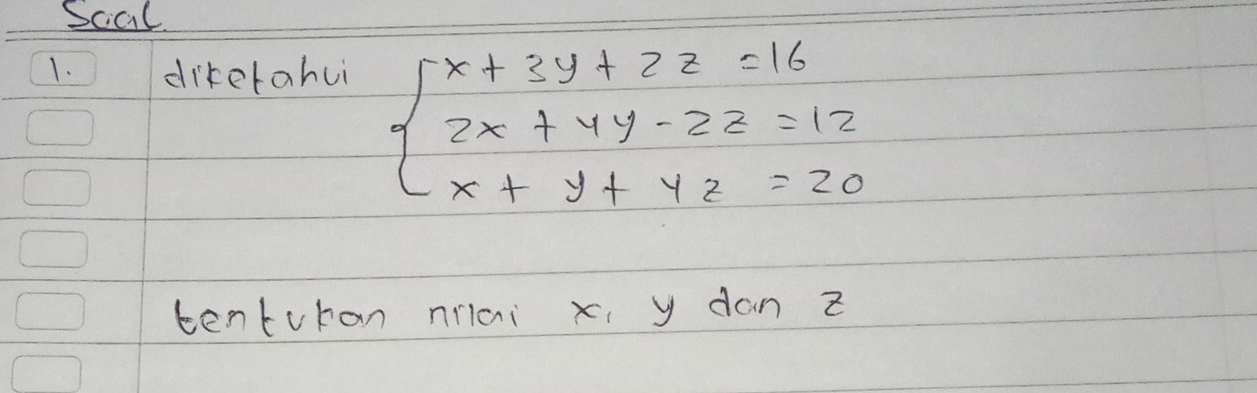 Soal
1. diketahui { x + 3y + 2z = 16
2x + 4y - 2z = 12
x + y + 4z = 20
tentukan nilai x, y dan z